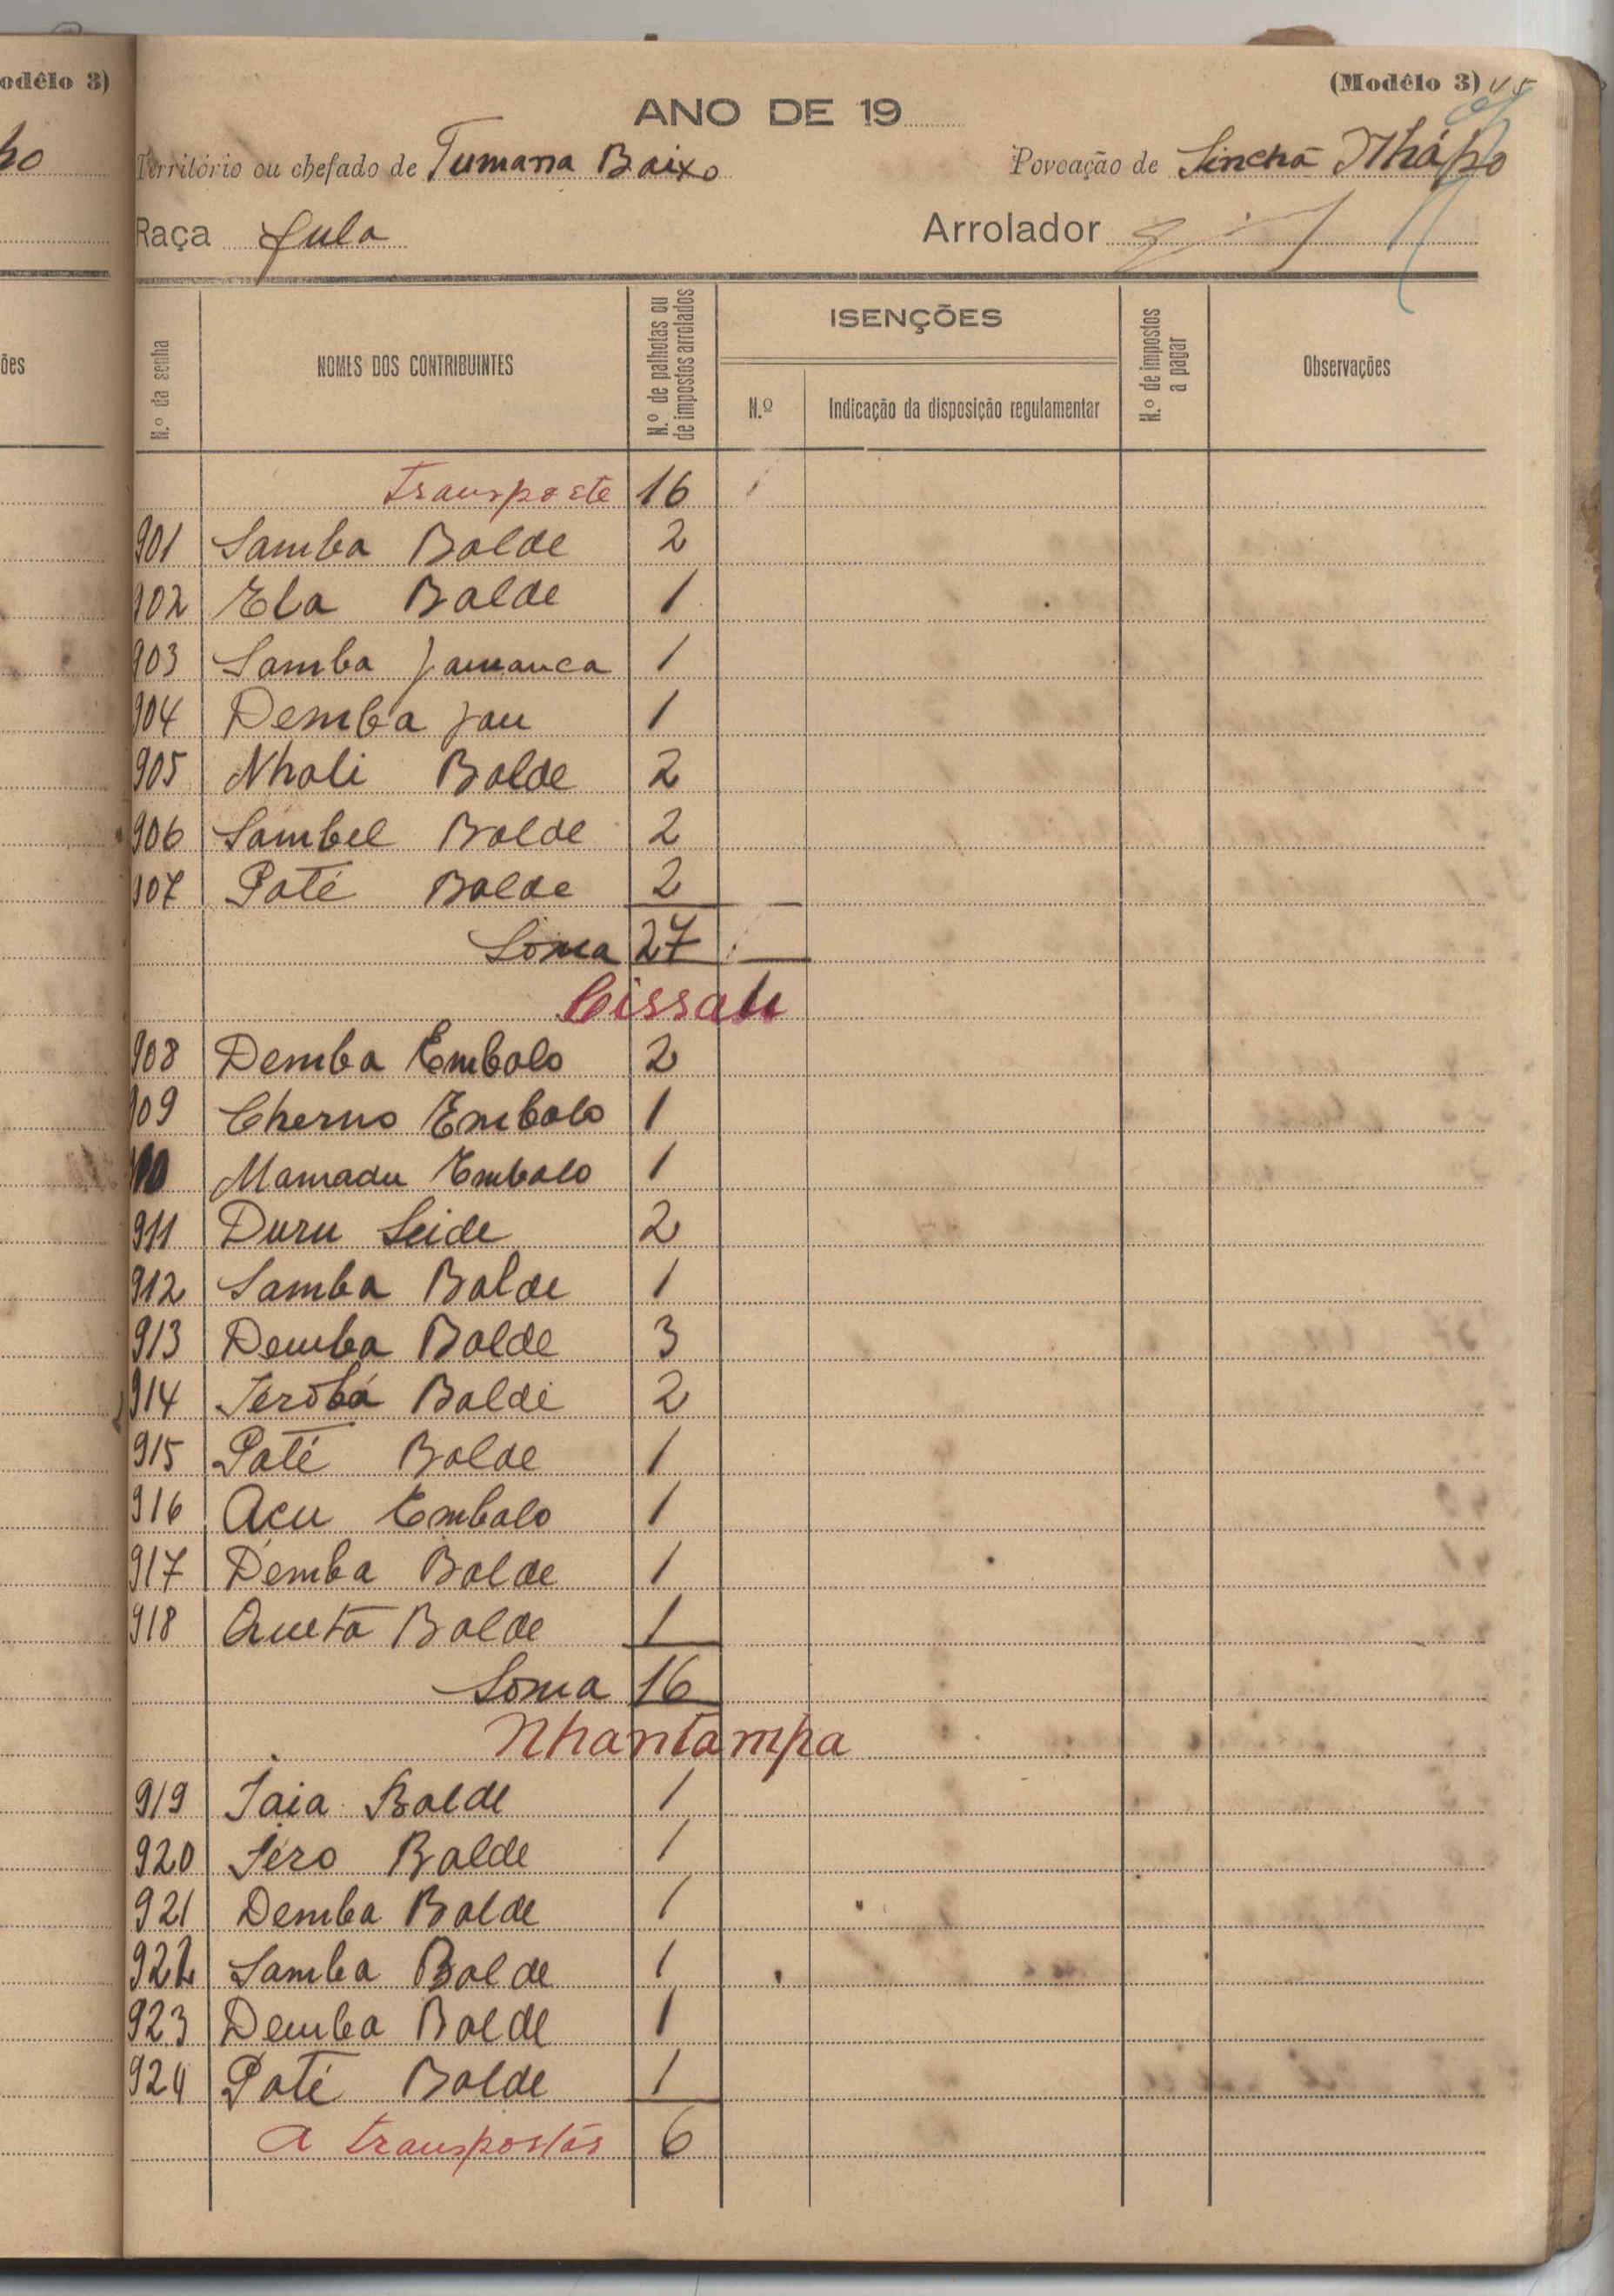 (Modêlo 3) 45
ANO DE 19
Território ou chefado de Tumana Baixo Povoação de Sincha
Raça fula Arrolador
N.º da senha NOMES DOS CONTRIBUINTES N.º de palhotas ou de impostos arrolados ISENÇÕES N.º de impostos a pagar Observações
N.º Indicação da disposição regulamentar
Transporte 16
901 Samba Balde 2
902 Ela Balde 1
903 Samba Jamanca 1
904 Demba Jau 1
905 Nhali Balde 2
906 Sambel Balde 2
907 Paté Balde 2
Soma 27
Cissau
908 Demba Embalo 2
909 Cherno Embalo 1
910 Mamadu Embalo 1
911 Duru Seide 2
912 Samba Balde 1
913 Demba Balde 3
914 Balde 2
915 Paté Balde 1
916 Acu Embalo 1
917 Demba Balde 1
918 Queta Balde 1
Soma 16
Nhantampa
919 Iaia Balde 1
920 Iero Balde 1
921 Demba Balde 1
922 Samba Balde 1
923 Demba Balde 1
924 Paté Balde 1
A transportar 6